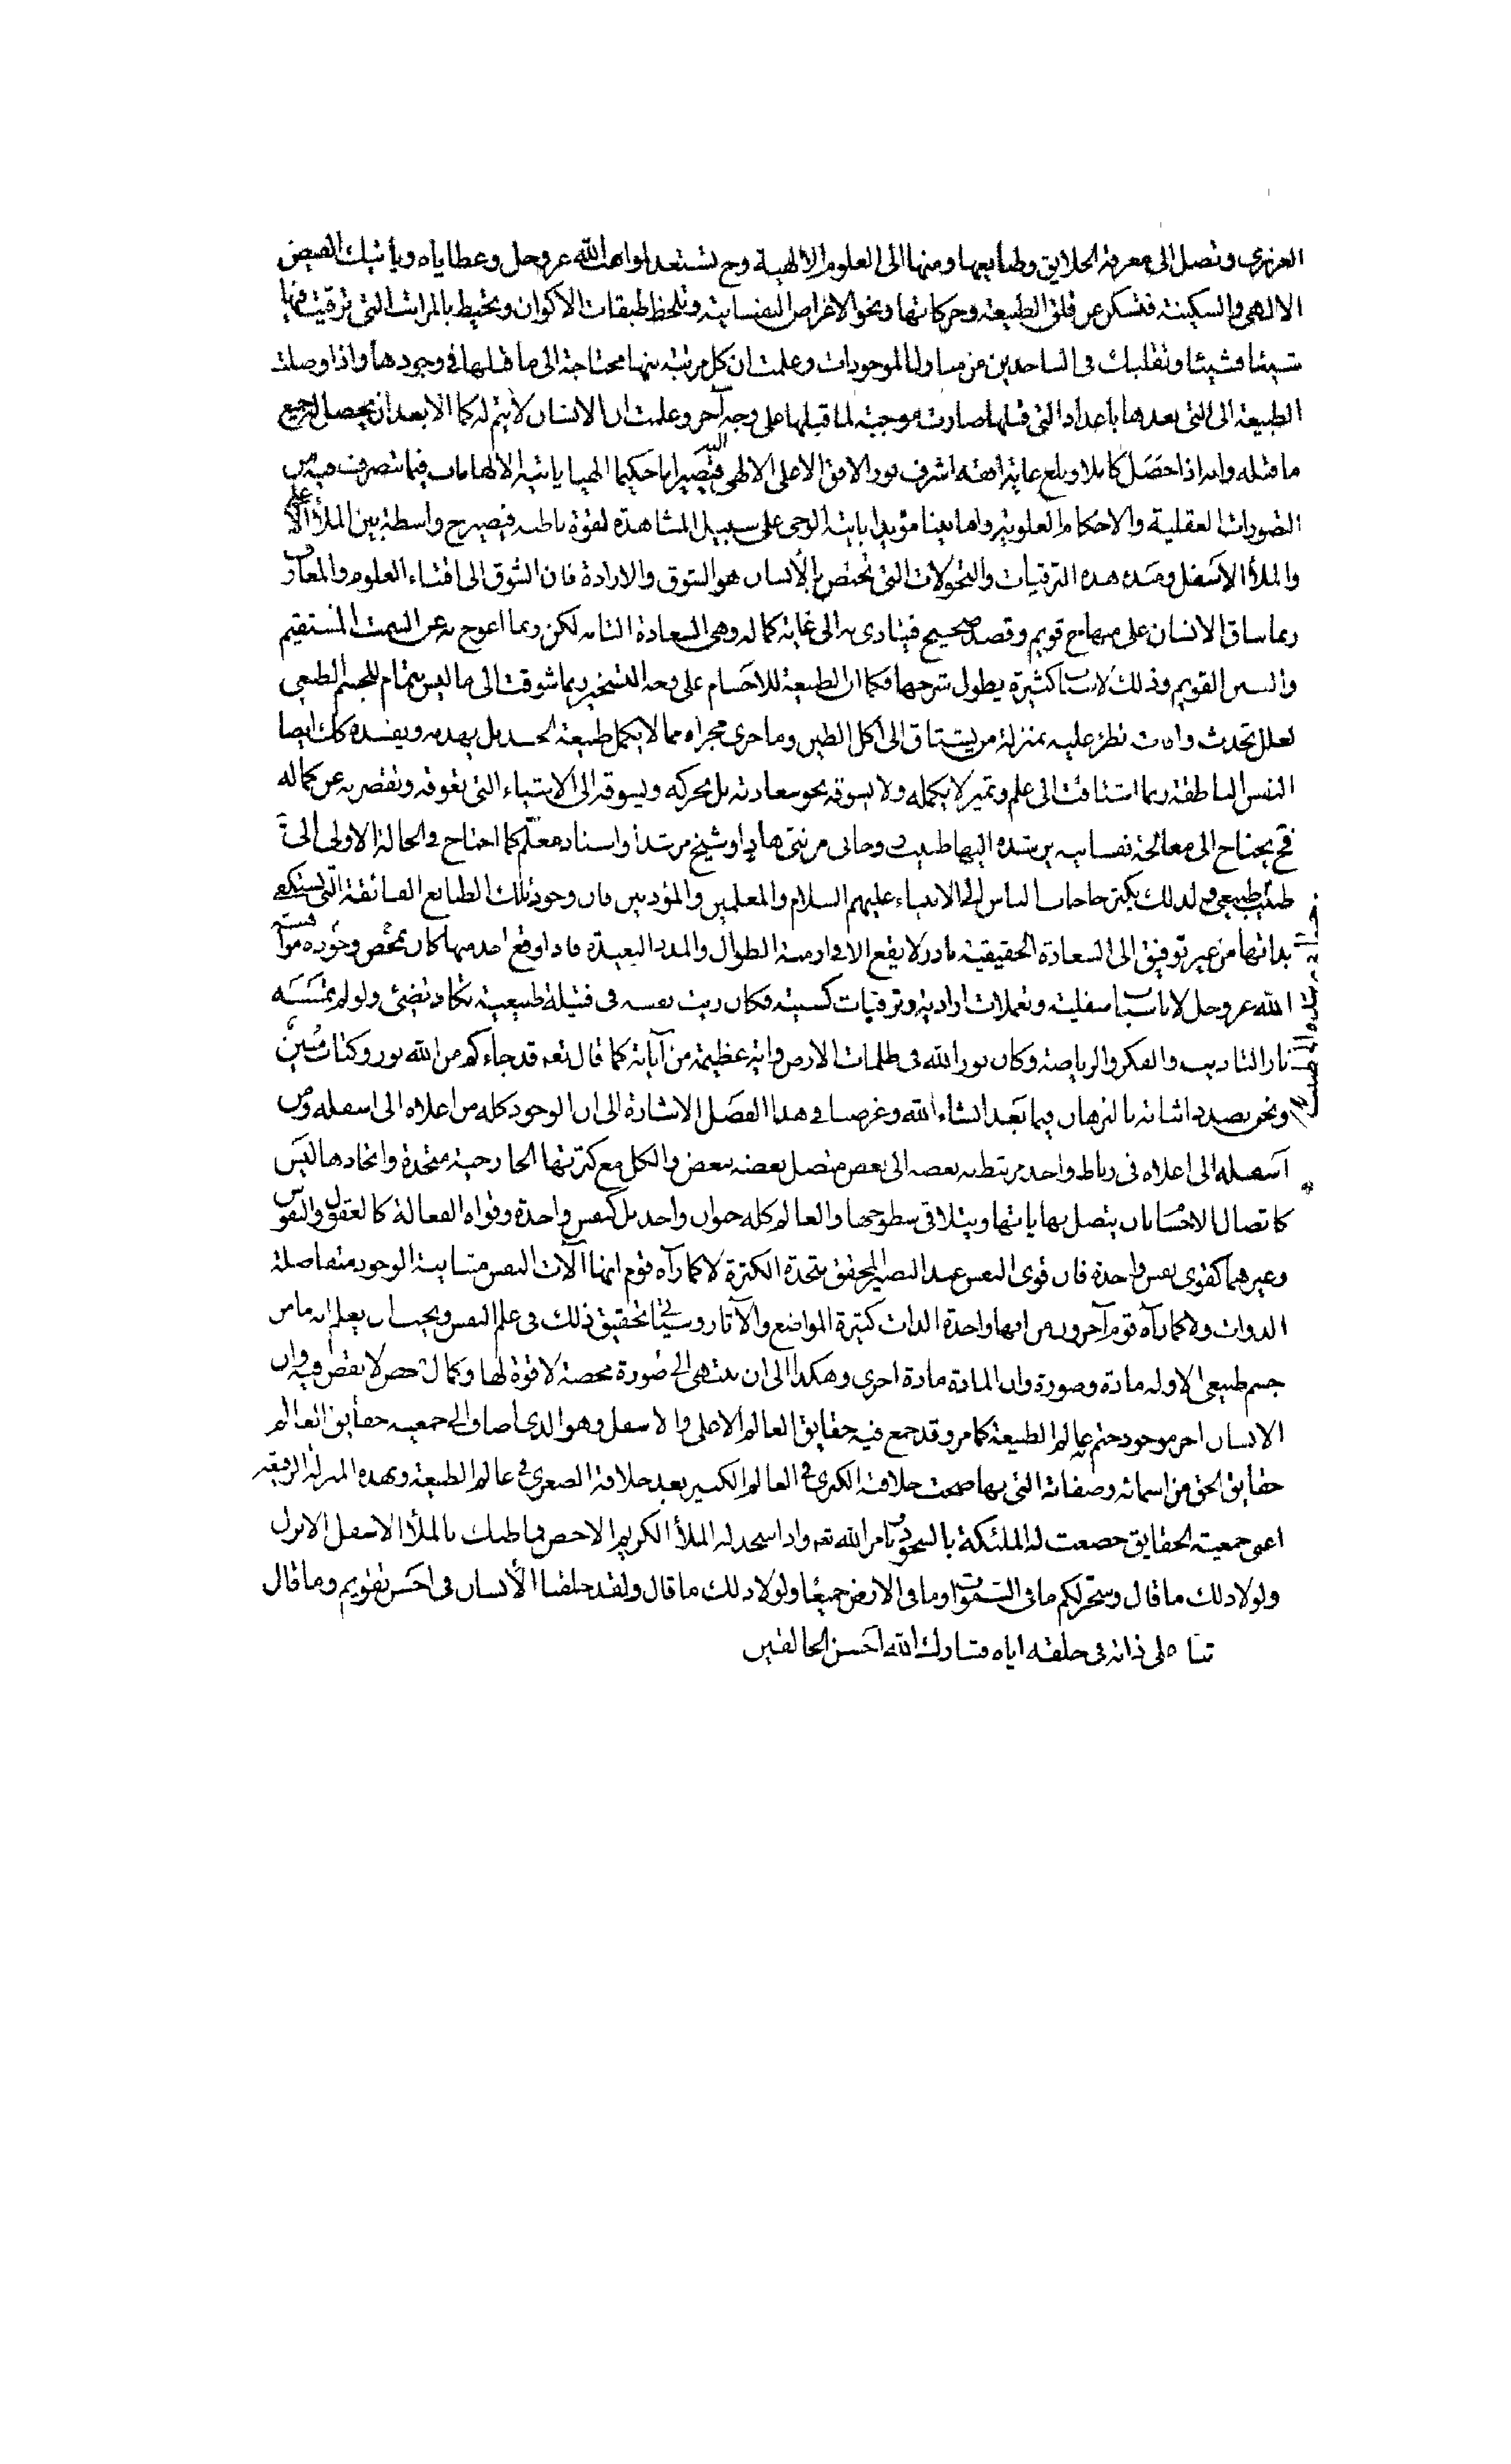 الغريزي وتصل الى معرفة الخلايق وطبايعها ومنها الى العلوم الالهية وح تستعد لمواهب الله عز وجل وعطاياه ويأتيك الفيض
الالهى والسكينة فتسكن عن قلق الطبيعة وحركاتها ونحو الاغراض النفسانية وتلحظ طبقات الاكوان وتحيط بالمراتب التي ترقيت فيها
شيئا فشيئا وتقلبك فى الساجدين من منازل الموجودات وعلمت ان كل مرتبة منها محتاجة الى ما قبلها في وجودها واذا وصلت
الطبيعة الى التى بعدها باعداد التي قبلها صارت موجبة لما قبلها على وجه آخر وعلمت ان الانسان لا يتم له كمال الا بعد ان يحصل له جميع
ما قبله وانه اذا حصل كاملا وبلغ غاية افقه اشرق نور الافق الاعلى الالهى اليه فيصير اما حكيما الهيا ياتيه الالهامات فيما يتصرف فيه من
التصورات العقلية والاحكام العلوية واما نبيا مؤيدا ياتيه الوحى على سبيل المشاهدة لقوة باطنه فيصير ح واسطة بين الملأ الاعلى
والملأ الاسفل ومبدء هذه الترقيات والتحولات التي تختص بالانسان هو الشوق والارادة فان الشوق الى اقتناء العلوم والمعارف
ربما ساق الانسان على منهاج قويم وقصد صحيح فيتادى به الى غاية كماله وهى السعادة التامة لكن ربما اعوج به عن السمت المستقيم
والسنن القويم وذلك لاسباب كثيرة يطول شرحها فكما ان الطبيعة للاجسام على وجه التسخير ربما شوقت الى ما ليس بتمام للجسم الطبيعى
لعلل تحدث وافات تطرء عليه بمنزلة من يشتاق الى اكل الطين وما جرى مجراه مما لا يكمل طبيعة الجسد بل يهدمه ويفسده كك ايضا
النفس الناطقة ربما اشتاقت الى علم وتميز لا يكمله ولا يسوقه نحو سعادته بل يحركه ويسوقه الى الاشياء التى تعوقه وتقصر به عن كماله
فح يحتاج الى معالجة نفسانيه يرشده اليها طبيب روحانى من نبى هاد او شيخ مرشد او استاد معلم كما احتاج في الحالة الاولى الى
طبيب طبيعى ولذلك يكثر حاجات الناس الى الانبياء عليهم السلام والمعلمين والمؤدبين فان وجود تلك الطبايع الفائقة التي تستكفى
بذاتها من غير توفيق الى السعادة الحقيقية نادر لا يقع الا في ازمنة الطوال والمدد البعيدة فاذا وقع احد منها كان بمحض وجوده موهبة
الله عز وجل لا باسباب سفلية وتعملات ارادية وترقيات كسبية فكان زيت نفسه فى فتيلة طبيعية تكاد تضئ ولو لم تمسسه
نار التاديب والفكر والرياضة وكان نور الله فى ظلمات الارض واية عظيمة من آياته كما قال تعه قد جاءكم من الله نور وكتاب مبين
ونحن بصدد اثباته بالبرهان فيما بعد انشاء الله وغرضنا فى هذا الفصل الاشارة الى ان الوجود كله من اعلاه الى اسفله ومن
اسفله الى اعلاه فى رباط واحد مرتبط به بعضه الى بعض متصل بعضه ببعض والكل مع كثرتها الخارجية متحدة واتحادها ليس
كاتصال الاجسام بان يتصل نهاياتها ويتلاقى سطوحها والعالم كله حيوان واحد بل كنفس واحدة وقواه الفعالة كالعقول والنفوس
وغيرهما كقوى نفس واحدة فان قوى النفس عند البصير المحقق متحدة الكثرة لا كما رآه قوم انها آلات النفس متباينة الوجود متفاصلة
الذوات ولا كما رآه قوم آخرون من انها واحدة الذات كثيرة المواضع والآثار وسياتى تحقيق ذلك فى علم النفس ويجب ان يعلم انه ما من
جسم طبيعى الا وله مادة وصورة وان المادة مادة اخرى وهكذا الى ان ينتهى الى صورة محضة لا قوة لها وكمال محض لا نقص فيه وان
الانسان اخر موجود ختم به عالم الطبيعة كما مر وقد جمع فيه حقايق العالم الاعلى والاسفل وهو الذى اضاف الى جمعيه حقايق العالم
حقايق الحق من اسمائه وصفاته التى بها صحت خلافته الكبرى فى العالم الكبير بعد خلافته الصغرى في عالم الطبيعة وبهذه المنزلة الرفيعة
اعنى جمعية الحقايق خضعت له الملئكة بالسجود بامر الله تعه واذا سجد له الملأ الكريم الاخص فما ظنك بالملأ الاسفل الانزل
ولولا ذلك ما قال وسخر لكم ما فى السموات وما فى الارض جميعا ولولا ذلك ما قال ولقد خلقنا الانسان فى احسن تقويم وما قال
ثناء على ذاته فى خلقه اياه فتبارك الله احسن الخالقين